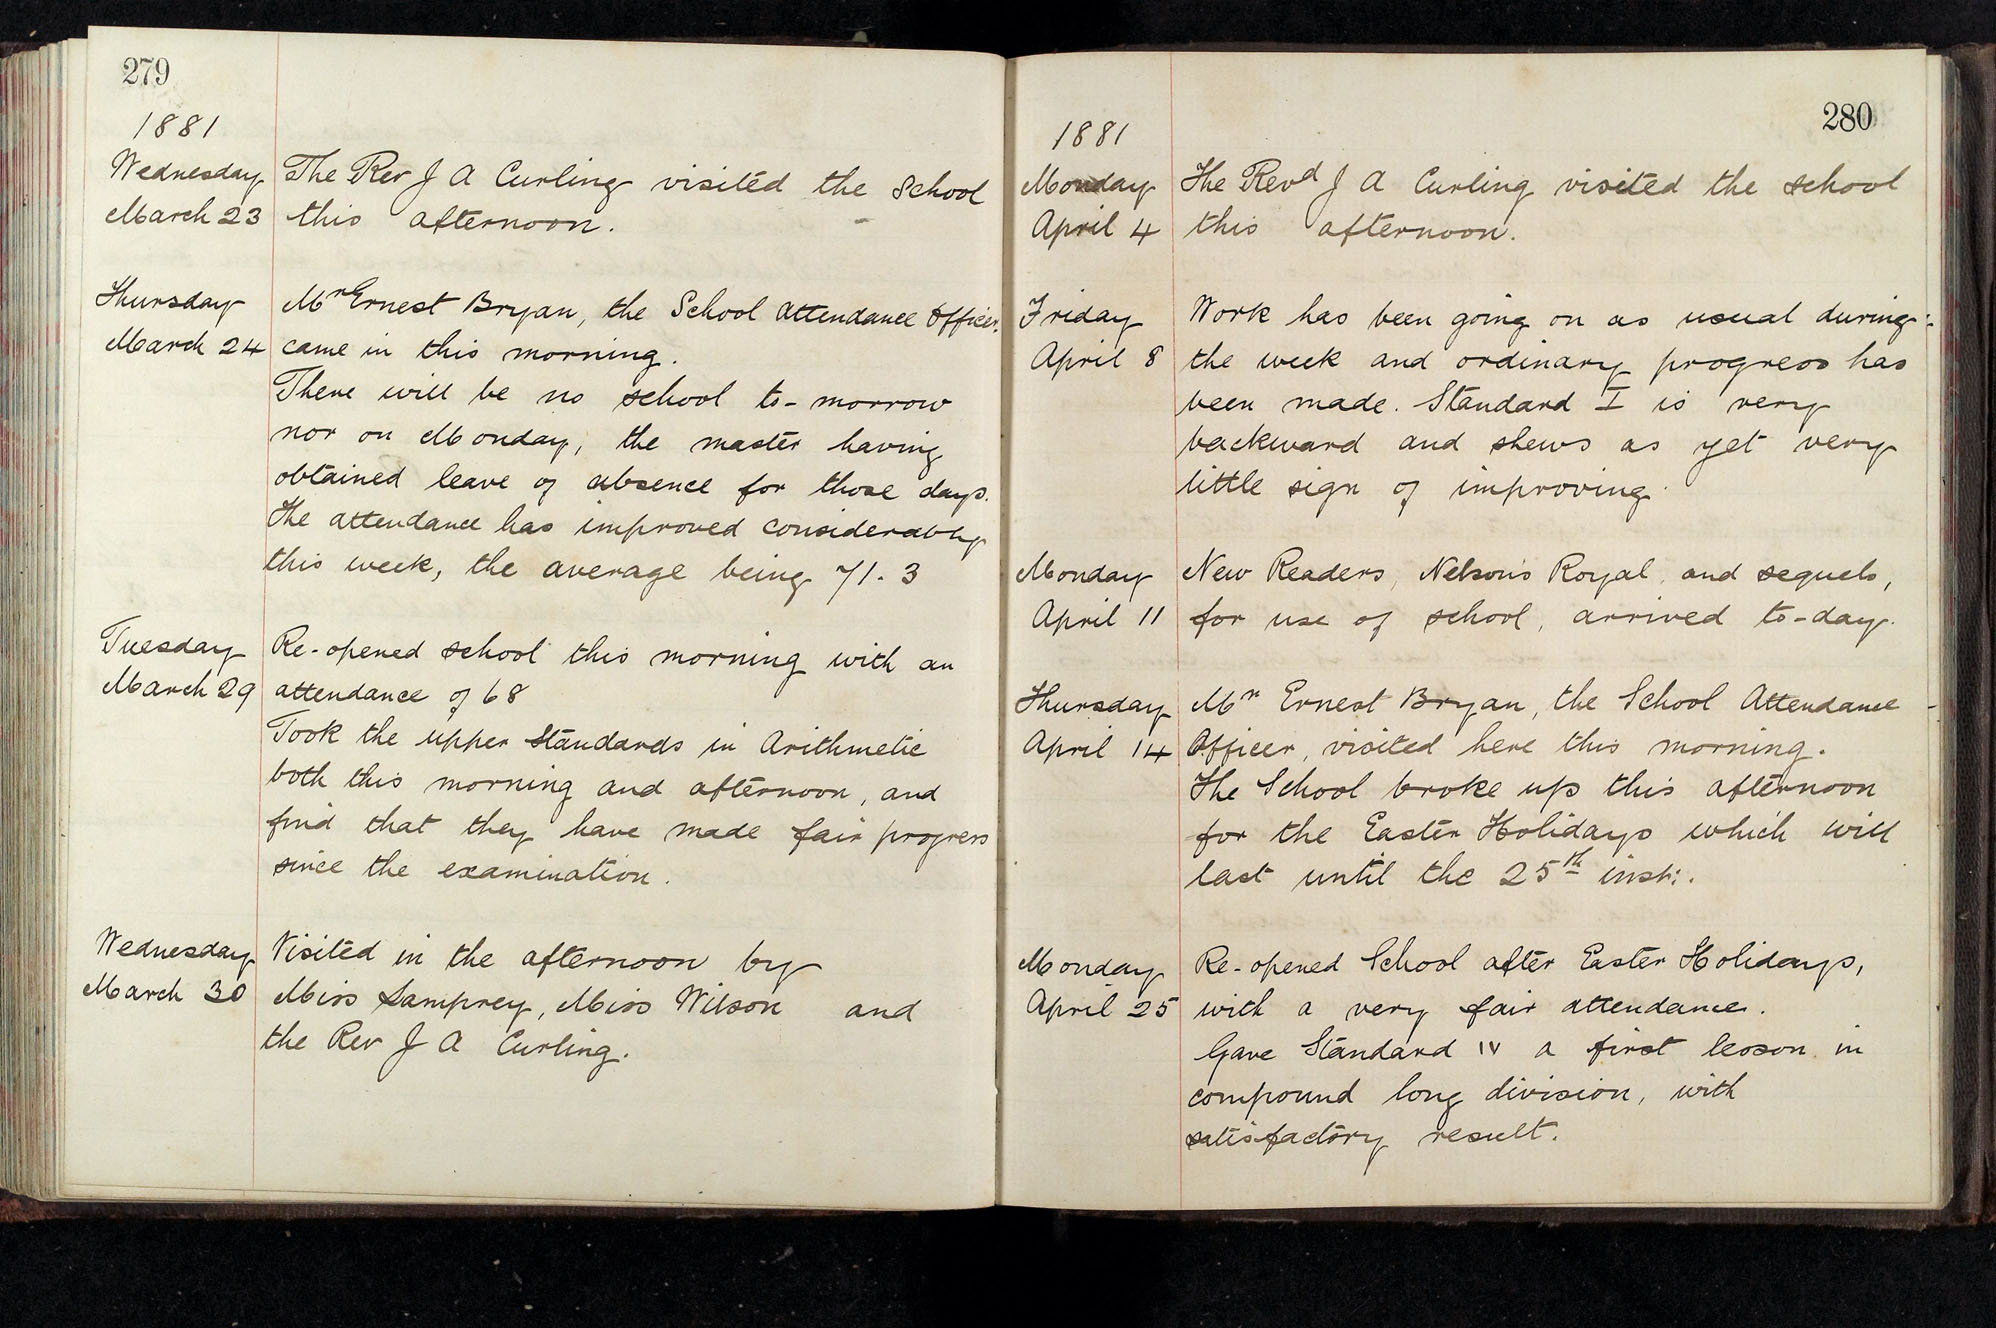 279
1881
Wednesday The Rev J A Curling visited the School
March 23 this afternoon.
Thursday Mr Ernest Bryan, the School Attendance Officer,
March 24 came in this morning.
There will be no school to-morrow
nor on Monday, the master having
obtained leave of absence for those days.
The attendance has improved considerably
this week, the average being 71.3
Tuesday Re-opened school this morning with an
March 29 attendance of 68
Took the upper standards in Arithmetic
both this morning and afternoon, and
find that they have made fair progress
since the examination.
Wednesday Visited in the afternoon by
March 30 Miss Lamprey, Miss Wilson and
the Rev J A Curling.
280
1881
Monday The Revd J A Curling visited the school
April 4 this afternoon.
Friday Work has been going on as usual during
April 8 the week and ordinary progress has
been made. Standard I is very
backward and shews as yet very
little sign of improving.
Monday New Readers, Nelson's Royal, and sequels,
April 11 for use of school, arrived to-day.
Thursday Mr Ernest Bryan, the School Attendance
April 14 Officer, visited here this morning.
The School broke up this afternoon
for the Easter Holidays which will
last until the 25th inst:.
Monday Re-opened School after Easter Holidays,
April 25 with a very fair attendance.
Gave Standard IV a first lesson in
compound long division, with
satisfactory result.